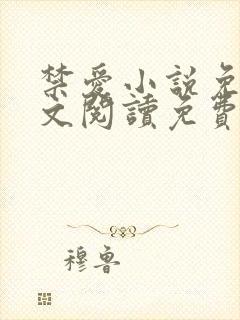 禁愛小說免
文閱讀免費
穆魯